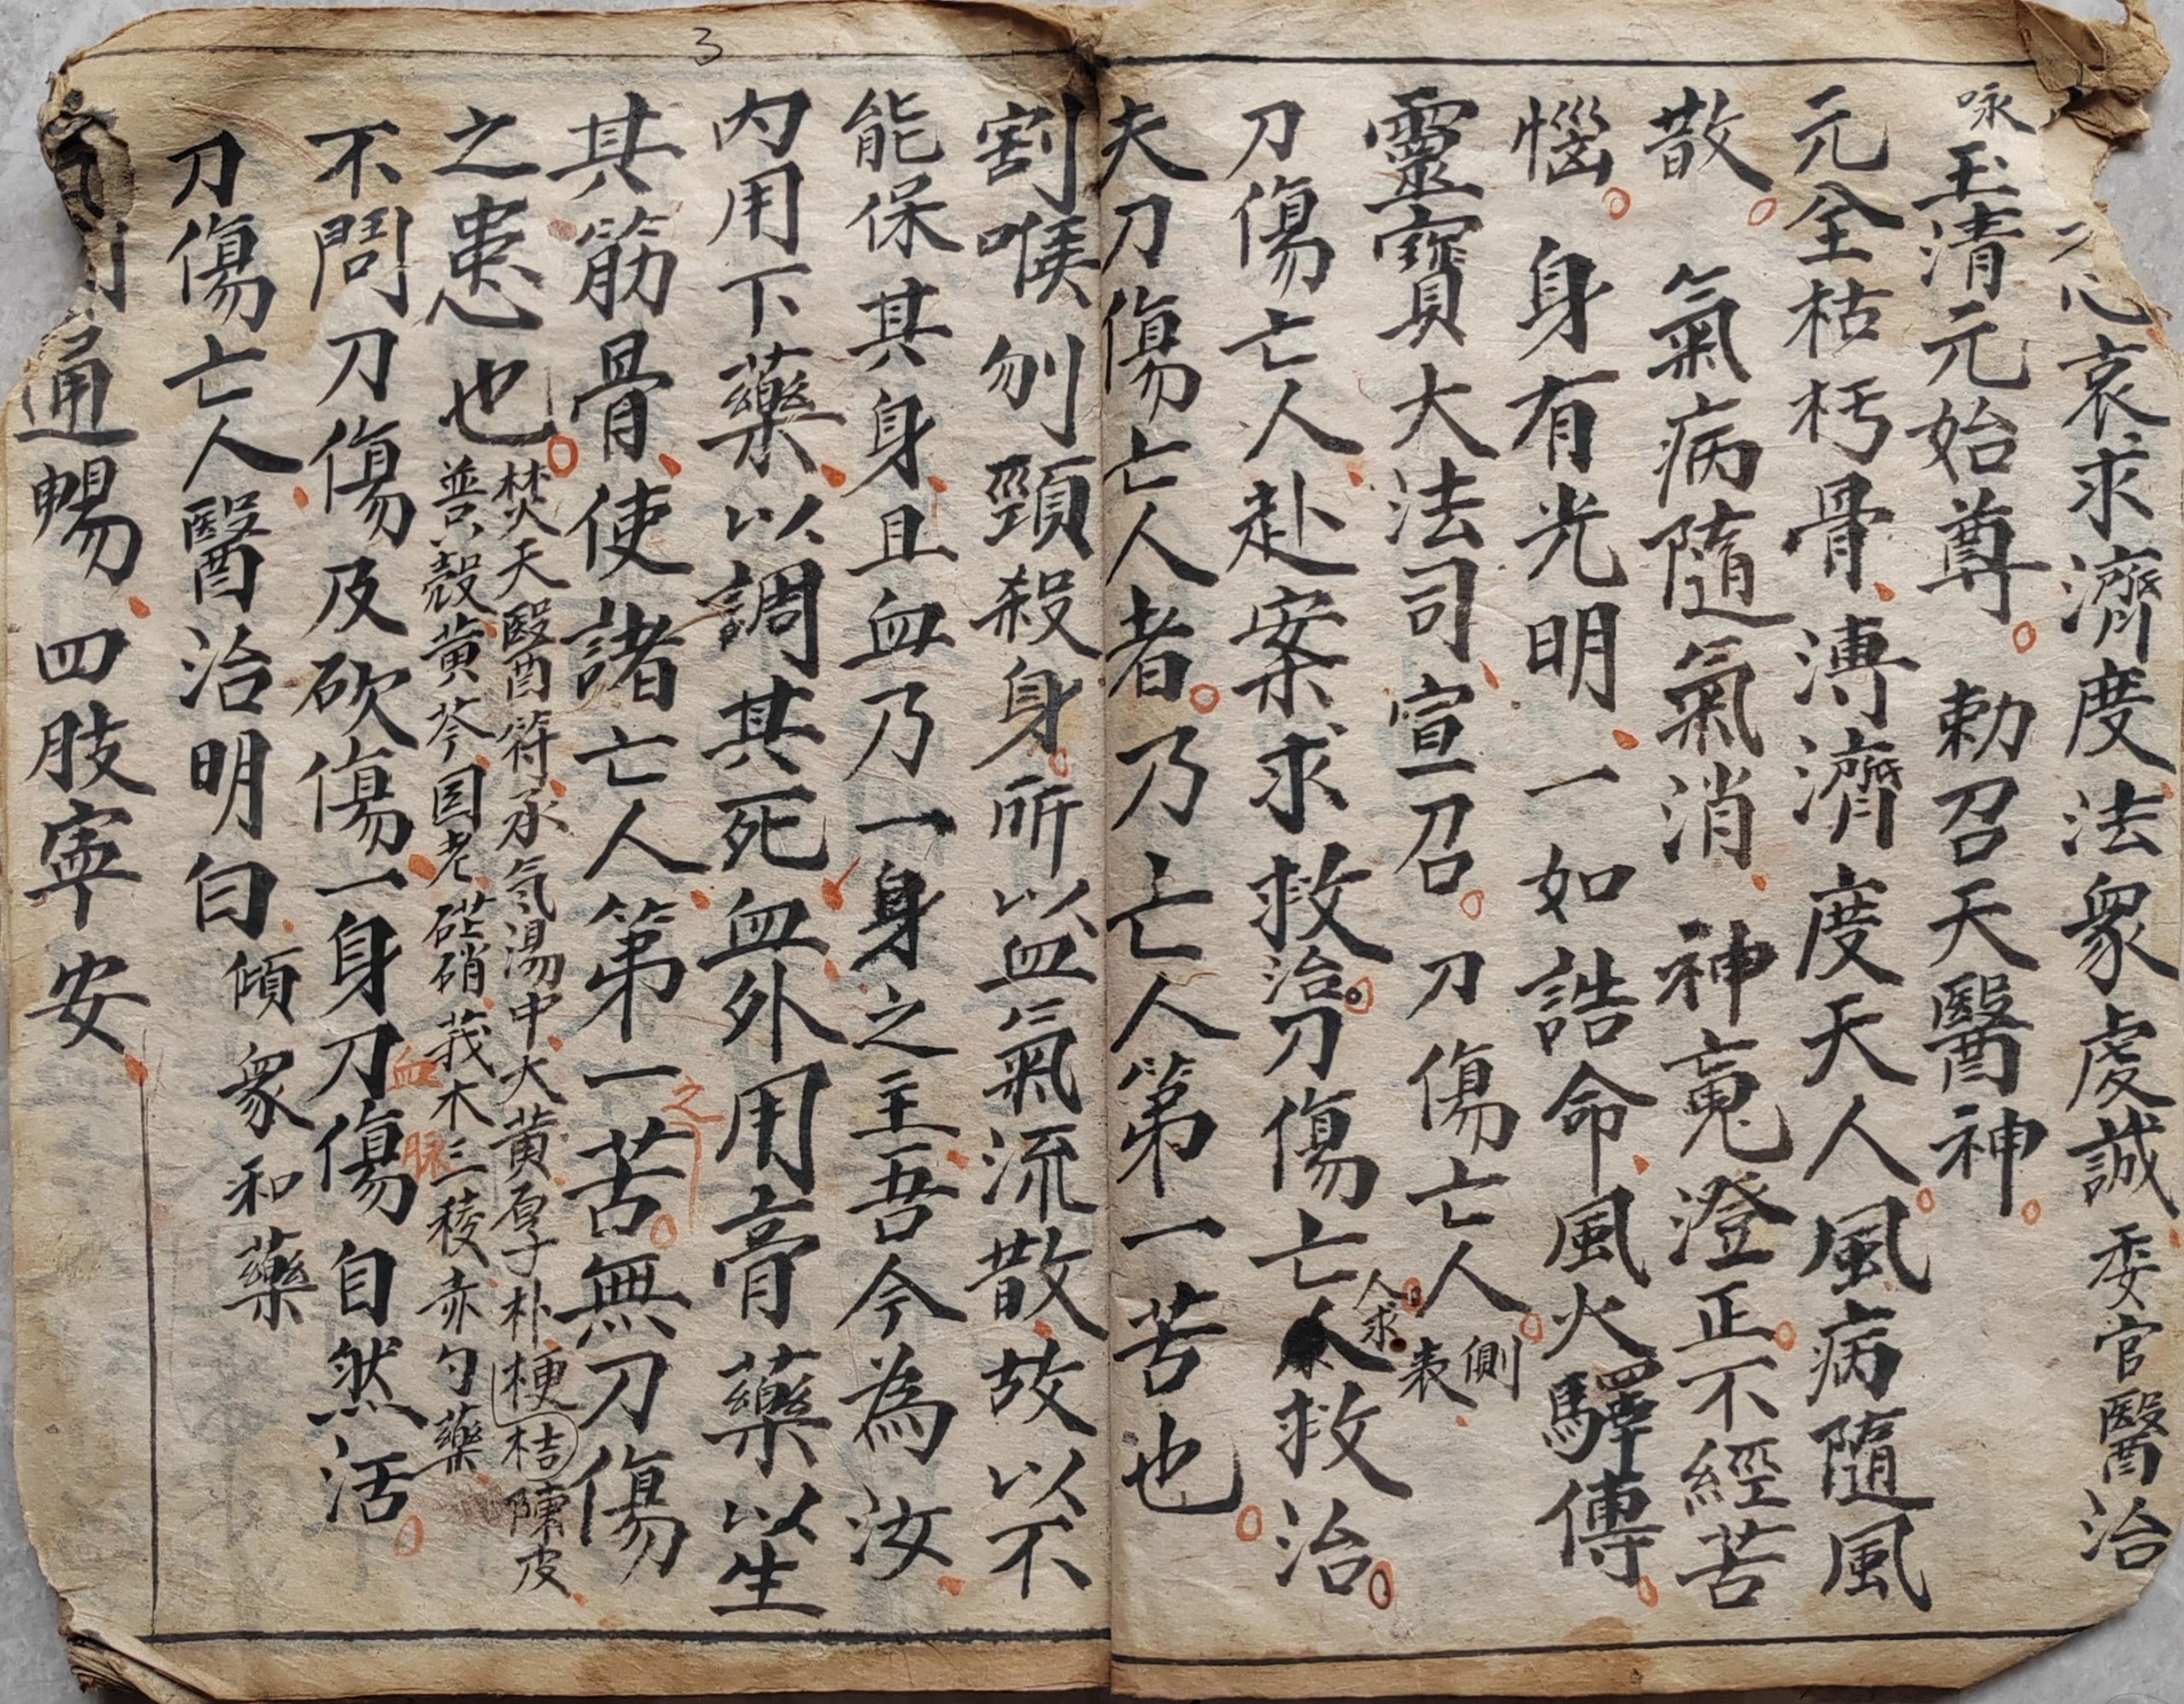 哀求濟度法衆虔誠委官醫治
咏玉清元始尊勅召天醫神
元全枯朽骨溥濟度天人風病隨風
散氣病隨氣消神䰟澄正不經苦
惱身有光明一如誥命風火驛傳
靈寶大法司宣召刀傷亡人側表
刀傷亡人赴案求救治刀傷亡人求救治
夫刀傷亡人者乃亡人第一苦也
割喉刎頸殺身所以血氣流散故以不
能保其身且血乃一身之主吾今為汝
內用下藥以調其死血外用膏藥以生
其筋骨使諸亡人第一之苦無刀傷
之患也
焚天醫符承氣湯中大黃厚子朴梗桔陳皮
善殼黃芩国老硭硝莪木三稜赤勺藥
不問刀傷及砍傷一身刀傷自然活
血脉
刀傷亡人醫治明白傾衆和藥
通暢四肢寧安
3